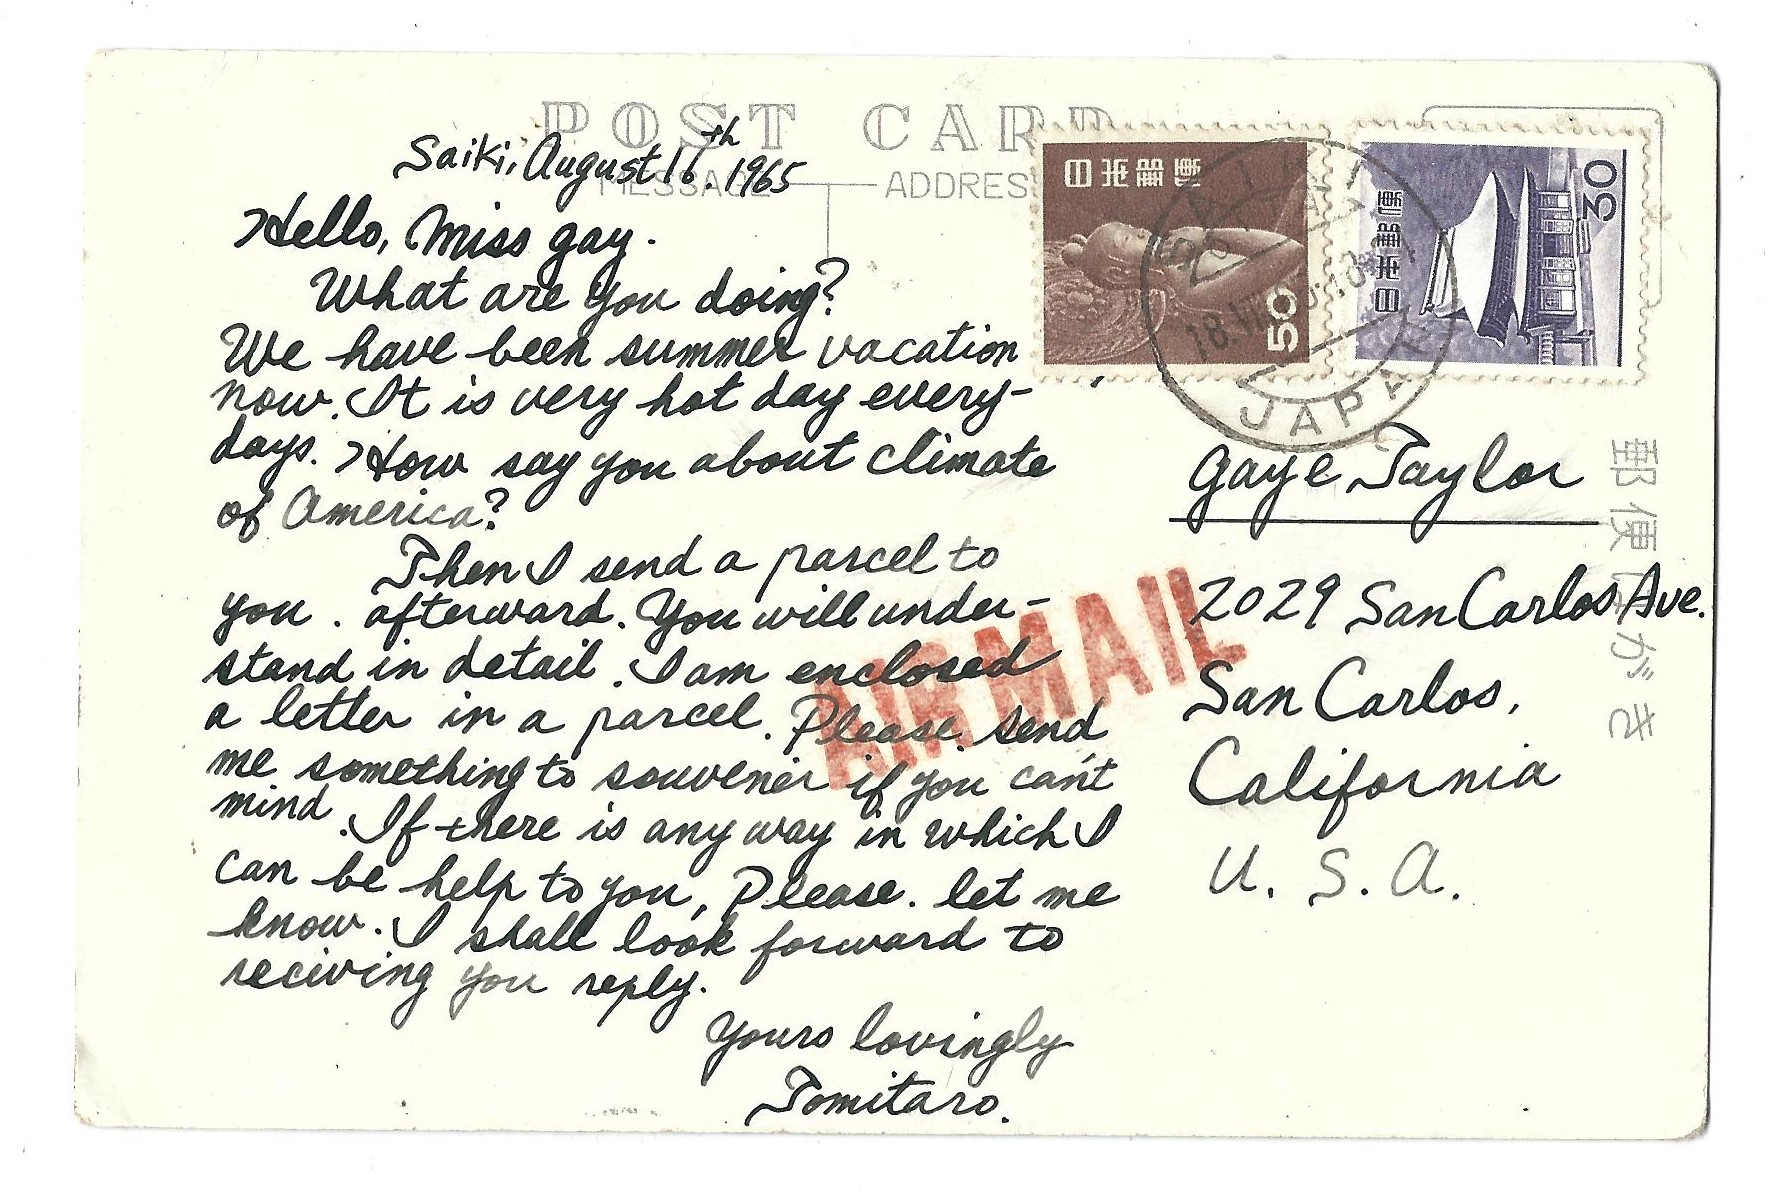 POST CARD
MESSAGE ADDRES
Saiki, August 16th. 1965
Hello, Miss gay.
What are you doing?
We have been summer vacation
now. It is very hot day every-
days. How say you about climate
of America?
Then I send a parcel to
you. afterward. You will under-
stand in detail. I am enclosed
a letter in a parcel. Please. send
me something to souvenir if you can't
mind. If there is any way in which I
can be help to you, Please. let me
know. I shall look forward to
reciving you reply.
Yours lovingly
Tomitaro.
日本郵便
50
日本郵便
30
SAIKI
18.VIII
JAPAN
AIR MAIL
Gaye Taylor
2029 San Carlos Ave.
San Carlos,
California
U. S. A.
郵便はがき